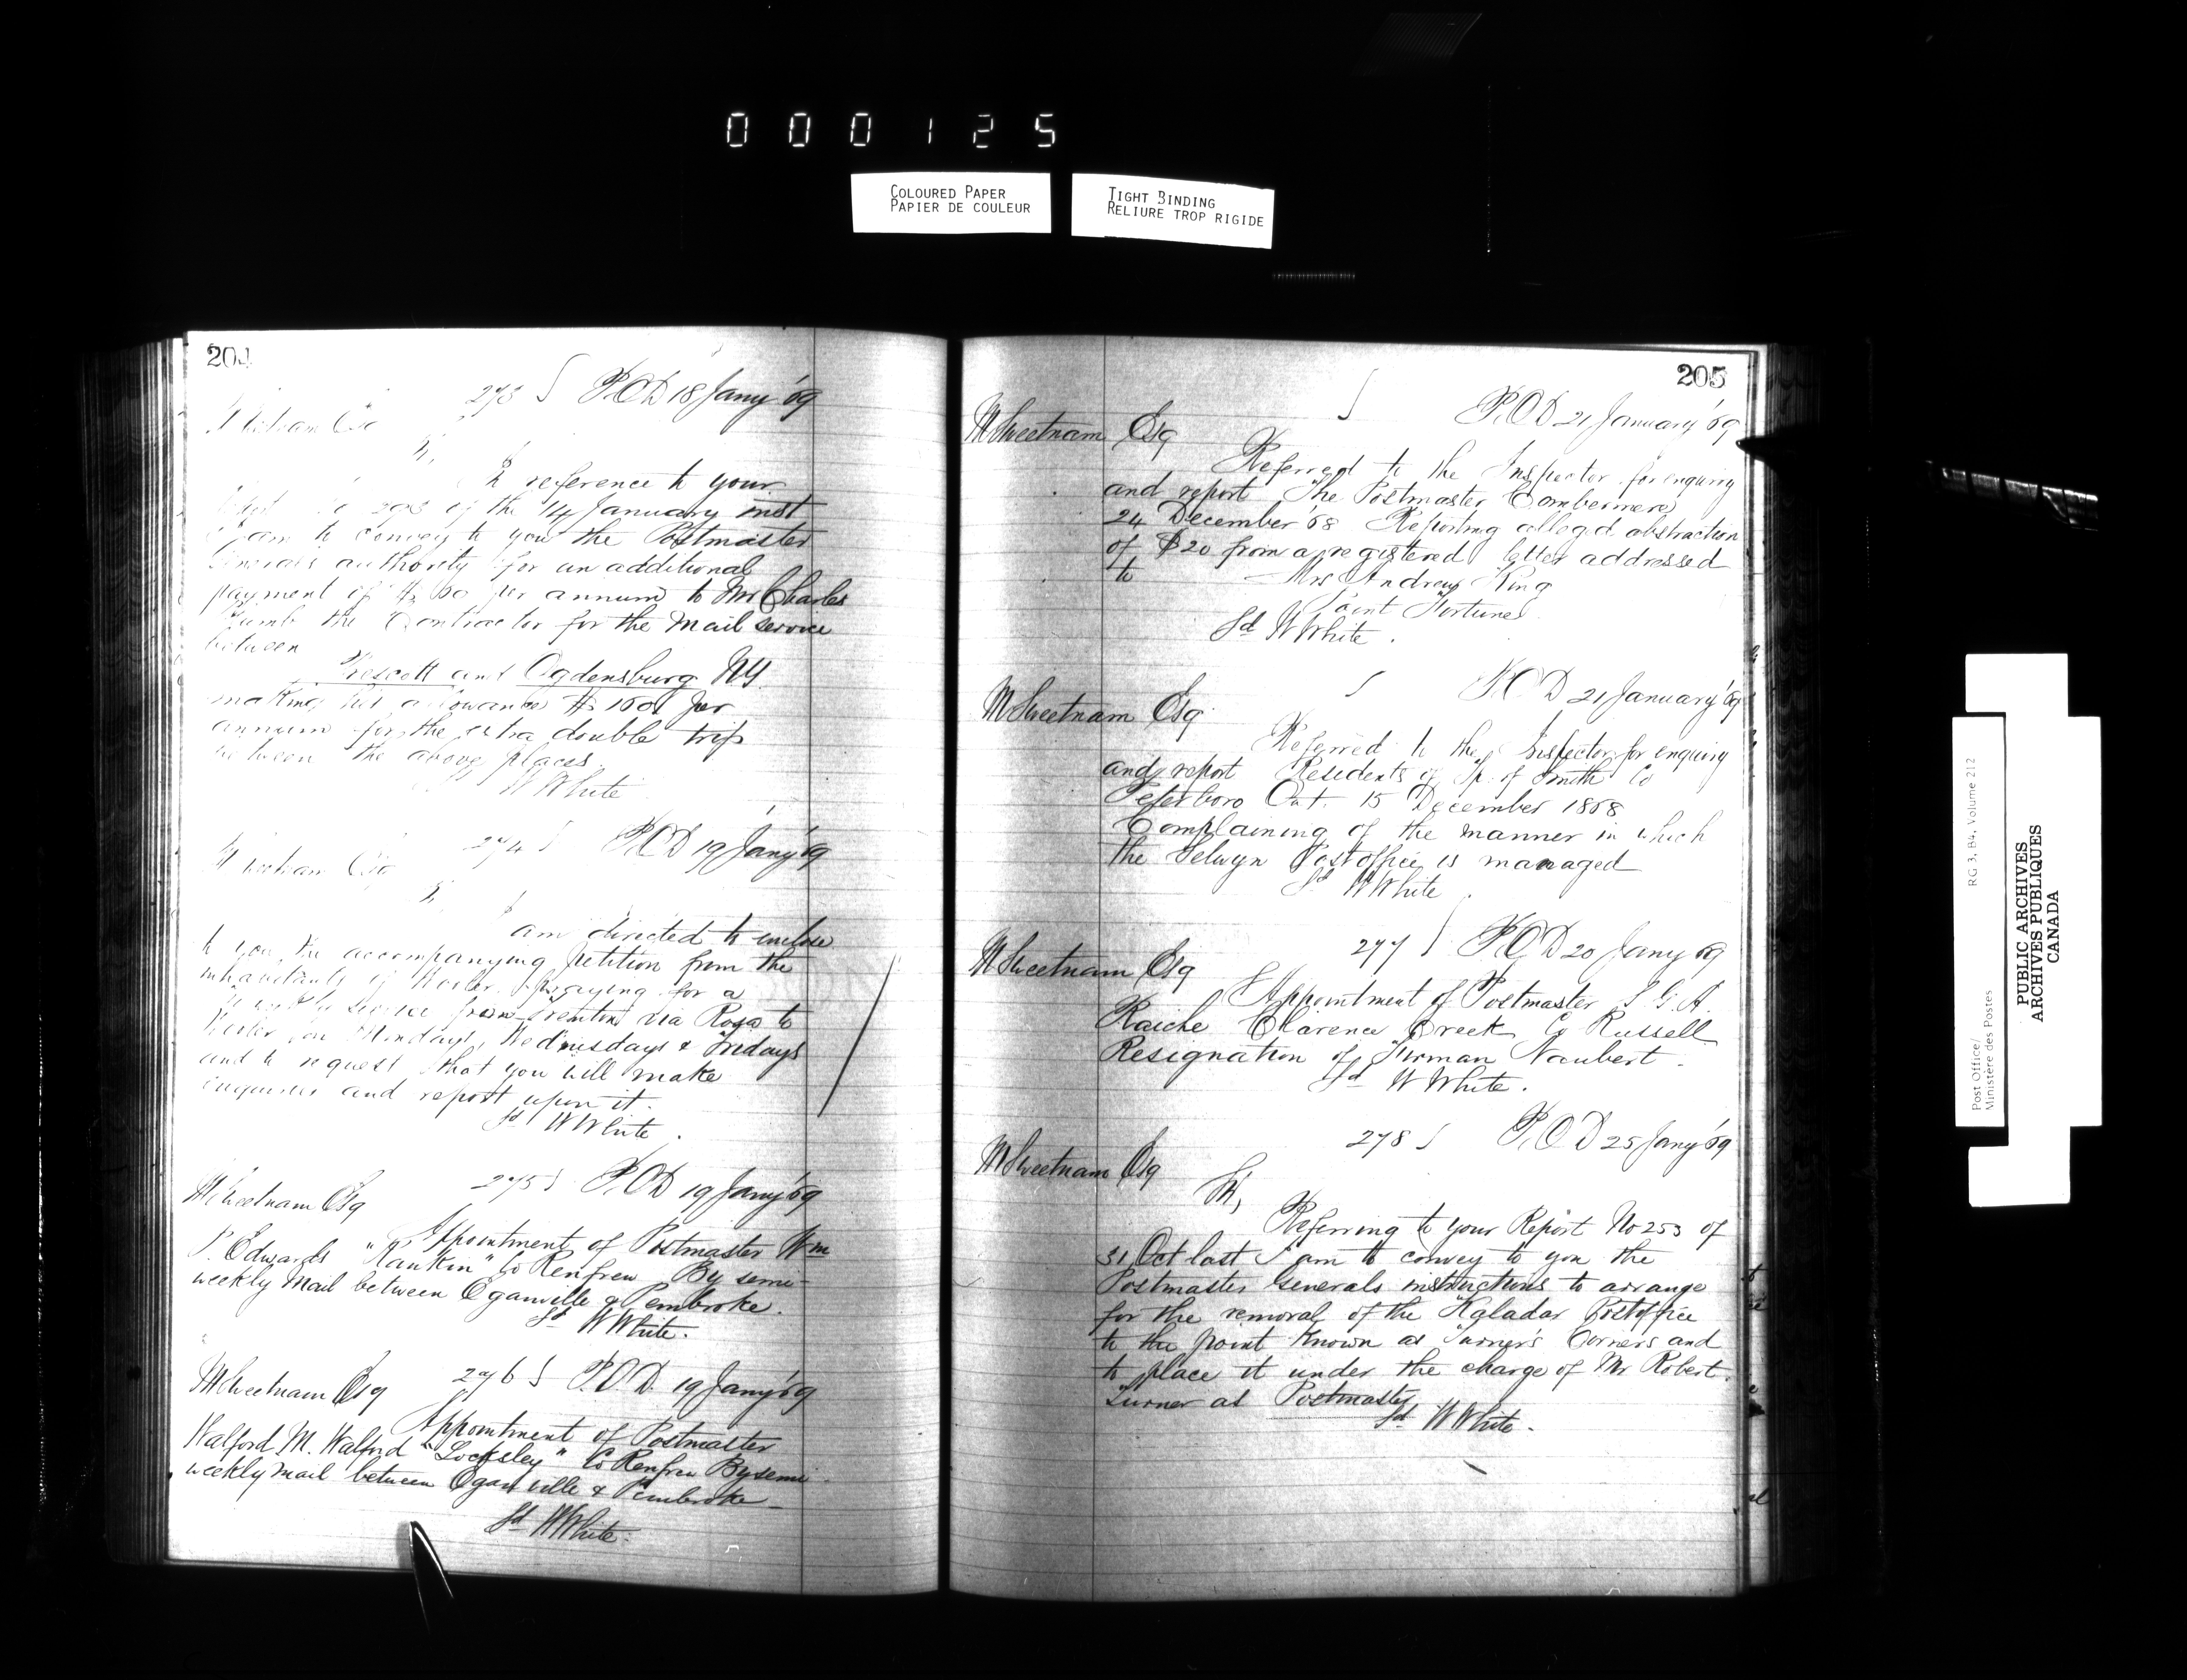 000125
COLOURED PAPER
PAPIER DE COULEUR
TIGHT BINDING
RELIURE TROP RIGIDE
204
273 P.O.D 18 Jany '69
Esq
reference to your
of the 14 January inst
I am to convey to you the Postmaster
General's authority for an additional
payment of $ per annum to Mr Charles
the Contractor for the mail service
between
Prescott and Ogdensburg NY.
making his allowance $ 100 per
annum for the extra double trip
between the above places.
W White
274 P.O.D 19 Jany '69
Esq
I am directed to enclose
to you the accompanying petition from the
inhabitants of praying for a
service from Trenton via Ross to
on Mondays, Wednesdays & Fridays
and to request that you will make
enquiries and report upon it.
Sd W White.
275 P.O.D 19 Jany '69
M Sweetnam Esq
Appointment of Postmaster Wm
Edwards "Rankin" Co Renfrew By semi-
weekly mail between Eganville & Pembroke.
Sd W White.
276 P.O.D. 19 Jany '69
M Sweetnam Esq
Appointment of Postmaster
Walford M. Walford "Locksley" Co Renfrew By semi
weekly mail between Egan ville & Pembroke
Sd W White.
205
P.O.D 21 January '69
M Sweetnam Esq
Referred to the Inspector for enquiry
and report The Postmaster Combermere
24 December '68 Reporting alleged abstraction
of $20 from a registered letter addressed
to Mrs Andrew King
Point Fortune
Sd W White.
P.O.D 21 January '69
M Sweetnam Esq
Referred to the Inspector for enquiry
and report Residents of Tp. of Smith Co
Peterboro Ont. 15 December 1868
Complaining of the manner in which
the Selwyn Post office is managed
Sd W White.
277 P.O.D 20 Jany 69
M Sweetnam Esq
Appointment of Postmaster
Clarence Creek Co Russell
Resignation of Naubert.
Sd W White.
278 P.O.D 25 Jany '69
M Sweetnam Esq
Sir,
Referring to your Report No 253 of
31 Oct last I am to convey to you the
Postmaster Generals instructions to arrange
for the removal of the Kaladar Postoffice
to the point known as Turner's Corners and
to place it under the charge of Mr Robert
Turner as Postmaster
Sd W White.
Post Office/
Ministère des Postes
RG 3, B4, Volume 212
PUBLIC ARCHIVES
ARCHIVES PUBLIQUES
CANADA